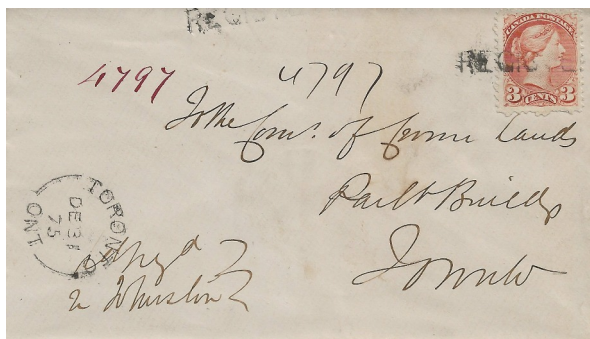 REGIS
CANADA POSTAGE
REGIS E
3 CENTS 3
4797 4797
To the Comr. of Crown Lands
Parlt Buildgs
Toronto
TORONTO
DE 31
75
ONT
Johnston